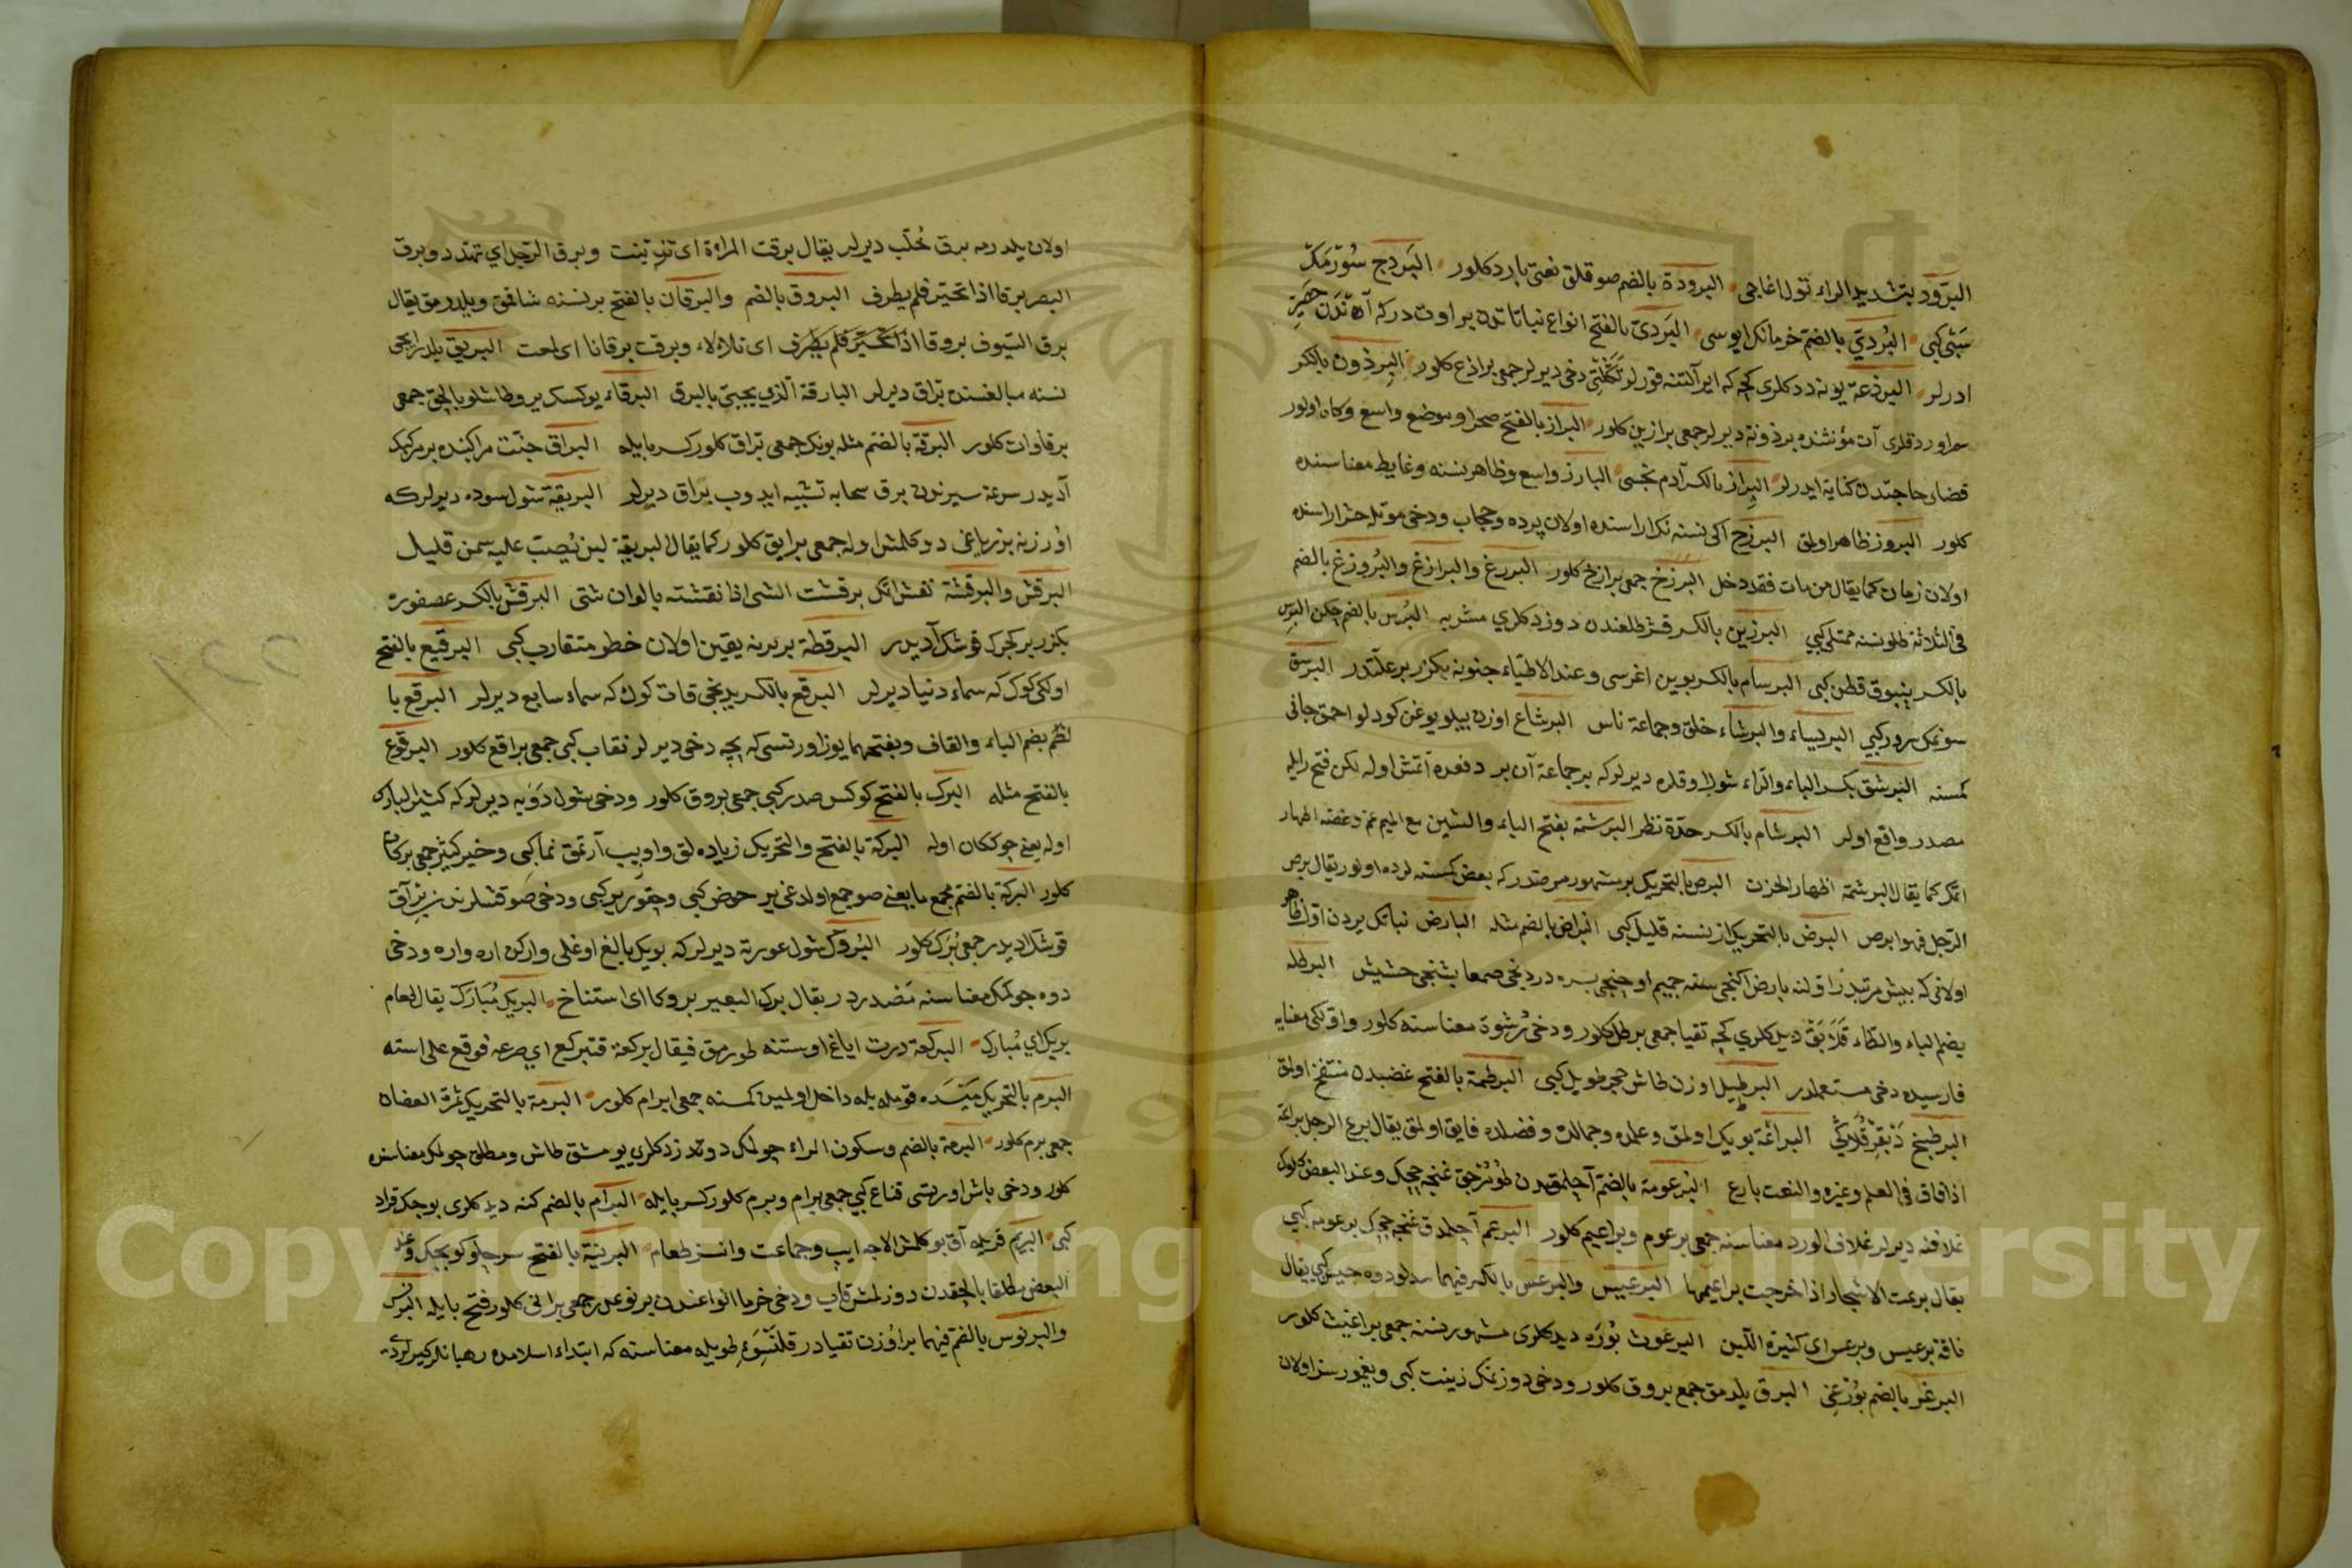 البرود بتشديد الراء تول اغاجى البرودة بالضم صوقلق نعتى بارد كلور البردج سورمك
سبى كبى البردى بالضم خرمانك ايوسى البردى بالفتح انواع نباتاتدن بر اوت دركه آندن حصير
ادرلر البرذعة يونه ددكلرى كچه كه اير آلتنه قورلر دخى ديرلر جمعى براذع كلور البرذون بالكسر
آت مؤنثنده برذونة ديرلر جمعى براذين كلور البراز بالفتح صحرا وموضع واسع وكان اولور
قضاء حاجتدن كناية ايدرلر البراز بالكسر آدم نجسى البارز واسع وظاهر نسنه وغايط معناسنده
كلور البروز ظاهر اولمق البرزخ اكى نسنه نك اراسنده اولان پرده وحجاب ودخى موتله حشر اراسنده
اولان زمان كما يقال من مات فقد دخل البرزخ جمعى برازخ كلور البرزغ والبرازغ والبروزغ بالضم
فى الثلاثة طلو نسنه ممتلى كبى البرزين بالكسر طلعندن دوزدكلرى مشربه البرس بالضم البرس
بالكسر پنبوق قطن كبى البرسام بالكسر بوين اغرسى وعند الاطباء جنونه بكزر بر علتدر
البرنساء والبرشاء خلق وجماعة ناس البرشاع اوزن بيلو يوغن كودلو احمق جانى
كمسنه البرشق بكسر الباء والراء شولا وقلره ديرلر كه بر جماعة آن بر دفعده آتمش اوله لكن فتح رايله
مصدر واقع اولر البرشام بالكسر حدة نظر البرشمة بفتح الباء والشين مع الميم غم وغصه اظهار
اتمك كما يقال البرشمة اظهار الحزن البرص بالتحريك بر مشهور مرضدر كه بعض كمسنه لرده اولور يقال برص
الرجل فهو ابرص البرض بالتحريك از نسنه قليل كبى البراض بالضم مثله البارض نباتك يردن اول ظاهر
اولانى كه بش مرتبه در اولنه بارض اكنجى سنه جميم اوچنجى بسره دردنجى صمعا بشنجى حشيش البرطلة
بضم الباء والطاء ديدكلرى كچه تقيا جمعى برطل كلور ودخى رشوة معناسنه كلور واولكى معنايه
فارسيده دخى مستعملدر البرطيل اوزن طاش حجر طويل كبى البرطمة بالفتح غضبدن منتفخ اولمق
البرطنج البراعة بويك اولمق وعلمده وجمالده وفضلده فايق اولمق يقال برع الرجل براعة
اذا فاق فى العلم وغيره والنعت بارع البرعومة بالضم آچلمقدن طومرجق غنچه چيچك وعند البعض كلوك
غلافنه ديرلر غلاف الورد معناسنه جمعى برعوم وبراعيم كلور البرعم آچلمدق غنچه چيچك برعومه كبى
يقال برعمت الاشجار اذا خرجت براعيمها البرعيس والبرعس بالكسر فيهما سدلو دوه يقال
ناقة برعيس وبرعس اى كثيرة اللبن البرغوث بوره ديدكلرى مشهور نسنه جمعى براغيث كلور
البرغز بالضم بوزغى البرق يلدرمق جمع بروق كلور ودخى دوزنمك زينت كبى ويغمورسز اولان
اولان يلدرمه برق خلب ديرلر يقال برقت المراة اى تزينت وبرق الرجل اى تهدد وبرق
البصر برقا اذا تحير فلم يطرف البروق بالضم والبرقان بالفتح بر نسنه شاقق ويلدرمق يقال
برق السيوف بروقا اذا تحير فلم يطرف اى تلالاء وبرقت برقانا اى لمعت البريق يلدرايجى
نسنه مبالغسنده براق ديرلر البارقة الذى يجئ بالبرق البرقاء يوكسك ير وطاشلو بالچق جمعى
برقاوات كلور البرقة بالضم مثله بونك جمعى براق كلور كسر بايله البراق جنت مراكبنده بر مركبك
آديدر سرعة سيرندن برق سحابه تشبيه ايدوب براق ديرلر البريقة شول سوده ديرلر كه
اوزرينه بز ياغى دوكلمش اوله جمعى برايق كلور كما يقال البريقة لبن يصب عليه سمن قليل
البرقش والبرقشة نقش اتمك برقشت الشى اذا نقشته بالوان شتى البرقش بالكسر عصفوره
بكزر بر كجرك قوشك آديدر البرقطة بربرينه يقين اولان خطو متقارب كبى البرقيع بالفتح
اولكى كوك كه سماء دنيا ديرلر البرقع بالكسر يدنجى قات كوك كه سماء سابع ديرلر البرقع با
لضم بضم الباء والقاف وبفتحهما يوز اورتسى كه پچه دخى ديرلر نقاب كبى جمعى براقع كلور البرقوع
بالفتح مثله البرك بالفتح كوكس صدر كبى جمعى بروق كلور ودخى شول دويه ديرلر كه كثير البارك
اوله يعنى چوككان اوله البركة بالفتح والتحريك زياده لق واوپيب آرتمق نما كبى وخير كثير جمعى بركات
كلور البركة بالضم مجمع ما يعنى صو جمع اولدغى ير حوض كبى وچقور ير كبى ودخى صو قشلرندن بر آق
قوشك اديدر جمعى برك كلور البروك شول عورته ديرلر كه بويك بالغ اوغلى واركن اره واره ودخى
دوه چوكمك معناسنه مصدردر يقال برك البعير بروكا اى استناخ البريك مبارك يقال طعام
بريك اى مبارك البركعة درت اياغ اوستنه طورمق فيقال بركعة فتبركع اى صرعه فوقع على استه
البرم بالتحريك قوميله بله داخل اولمين كمسنه جمعى ابرام كلور البرمة بالتحريك ثمرة العضاه
جمعى برم كلور البرمة بالضم وسكون الراء چولمك دوزدكلرى يومشق طاش ومطلق چولمك معناسنه
كلور ودخى باش اورتسى قناع كبى جمعى برام وبرم كلور كسر بايله البرام بالضم كنه ديدكلرى بوجك قراد
كبى البريم قريله آق بوكلمش الاجه ايپ وجماعت وانسز طعام البرنية بالفتح سرچلو كوپجك وعند
البعض مطلقا بالچقدن دوزلمش قاپ ودخى خرما انواعندن بر نوعدر جمعى برانى كلور فتح بايله البرنس
والبرنوس بالضم فيهما بر اوزن تقيادر قلنسوة طويله معناسنه كه ابتداء اسلامده رهبانلر كيرلردى